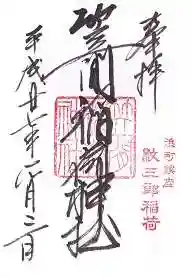 奉拝
浜町鎮座
紋三郎稲荷
笠間稲荷神社
平成廿七年一月二日